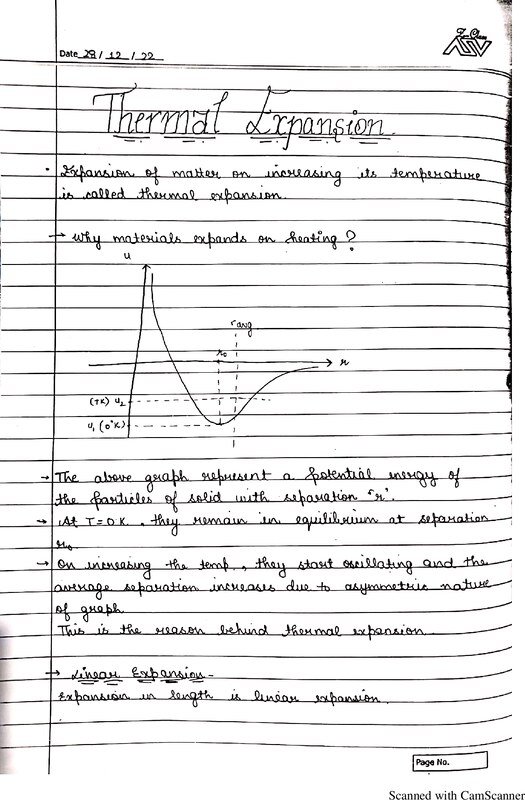 Date 28/12/22
Thermal Expansion
• Expansion of matter on increasing its temperature
is called thermal expansion.
→ why materials expands on heating?
u
ravg
r0
r
(TK) u2
u1 (0°K)
→ The above graph represent a potential energy of
the particles of solid with separation "r".
→ At T=0K, they remain in equilibrium at separation
r0
→ On increasing the temp, they start oscillating and the
average separation increases due to asymmetric nature
of graph.
This is the reason behind thermal expansion.
→ Linear Expansion-
Expansion in length is linear expansion.
Page No.
Scanned with CamScanner